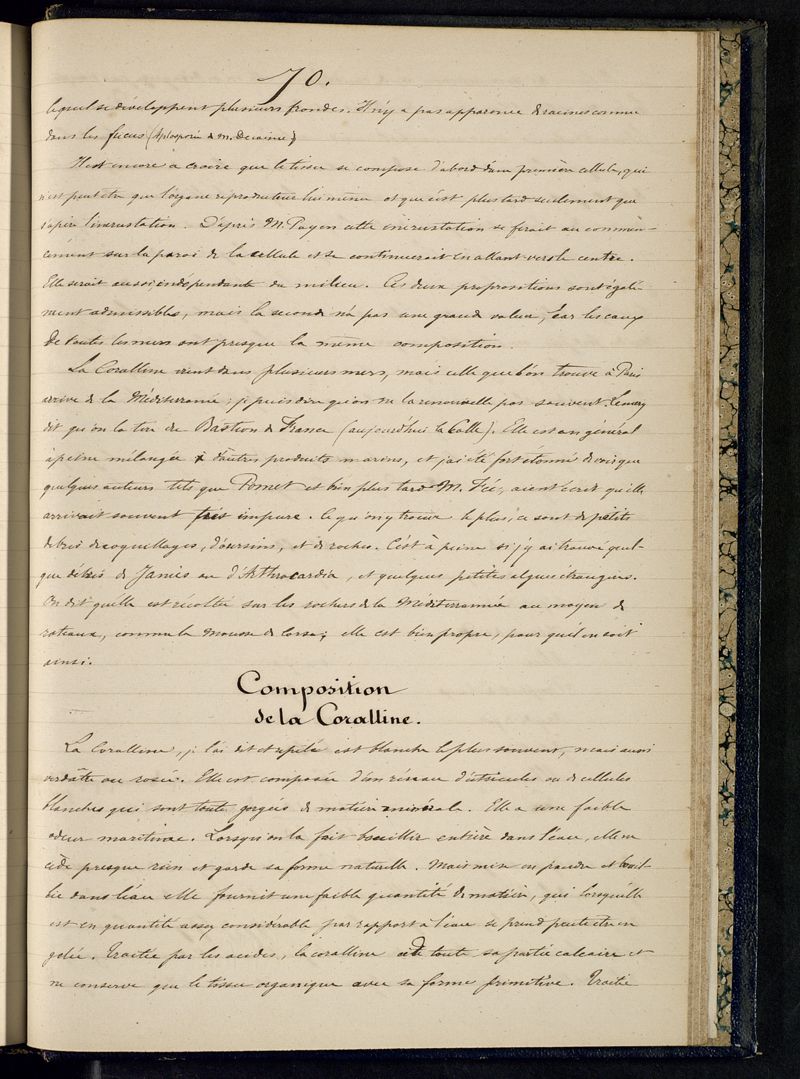 70.
lequel se développent plusieurs frondes. Il n'y a pas apparence de racines comme
dans les fucus (Aplosporées de M. Decaisne)
Il est encore à croire que le tissu se compose d'abord d'une première cellule, qui
n'est peut-être que l'organe reproducteur lui même et que c'est plus tard seulement que
s'opère l'incrustation. D'après M. Payen cette incrustation se ferait au commen-
cement sur la paroi de la cellule et se continuerait en allant vers le centre.
Elle serait aussi indépendante du milieu. Ces deux propositions sont égale-
ment admissibles, mais la seconde n'a pas une grande valeur, car les eaux
de toutes les mers ont presque la même composition.
La Coralline vient dans plusieurs mers, mais celle que l'on trouve à Paris
arrive de la Méditerranée; je puis dire qu'on ne la renouvelle pas souvent. Lemery
dit qu'on la tire du Bastion de France (aujourd'hui la Calle). Elle est en général
à peine mélangée à d'autres produits marins, et j'ai été fort étonné de voir que
quelques auteurs tels que Pomet et bien plus tard M. Fée, aient écrit qu'elle
arrivait souvent très impure. Ce qu'on y trouve le plus, ce sont de petits
débris de coquillages, d'oursins, et de roches. C'est à peine si j'y ai trouvé quel-
que débris de Janies ou d'Arthrocardia, et quelques petites algues étrangères.
On dit qu'elle est récoltée sur les rochers de la Méditerrannée au moyen de
rateaux, comme la Mousse de Corse; elle est bien propre, pour qu'il en soit
ainsi.
Composition
de la Coralline.
La Coralline, je l'ai dit et répété est blanche le plus souvent, mais aussi
verdâtre ou rosée. Elle est composée d'un réseau d'utricules ou de cellules
blanches qui sont toute gorgées de matière minérale. Elle a une faible
odeur maritime. Lorsqu'on la fait bouillir entière dans l'eau, elle ne
cède presque rien et garde sa forme naturelle. Mais mise en poudre et bouil-
lie dans l'eau elle fournit une faible quantité de matière, qui lorsqu'elle
est en quantité assez considérable par rapport à l'eau se prend peut etre en
gelée. Traitée par les acides, la coralline cède toute sa partie calcaire et
ne conserve que le tissu organique avec sa forme primitive. Traitée